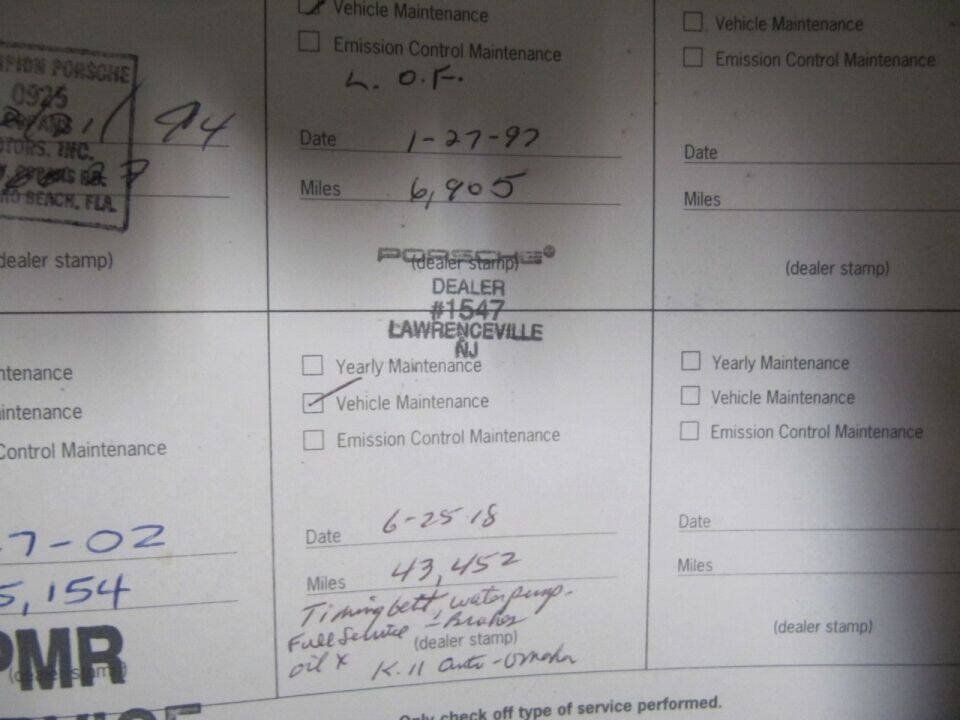 Vehicle Maintenance
Emission Control Maintenance
L. O.F.
Date 1-27-97
Miles 6,905
(dealer stamp)
PORSCHE®
DEALER
#1547
LAWRENCEVILLE
NJ
Vehicle Maintenance
Emission Control Maintenance
Date
Miles
(dealer stamp)
PORSCHE
0925
94
MOTORS, INC.
BEACH, FLA.
dealer stamp)
ntenance
intenance
Control Maintenance
7-02
5,154
PMR
Yearly Maintenance
Vehicle Maintenance
Emission Control Maintenance
Date 6-25-18
Miles 43,452
Timing belt, water pump.
Full Service - Brakes
(dealer stamp)
oil x
Auto-Omaha
Yearly Maintenance
Vehicle Maintenance
Emission Control Maintenance
Date
Miles
(dealer stamp)
Only check off type of service performed.